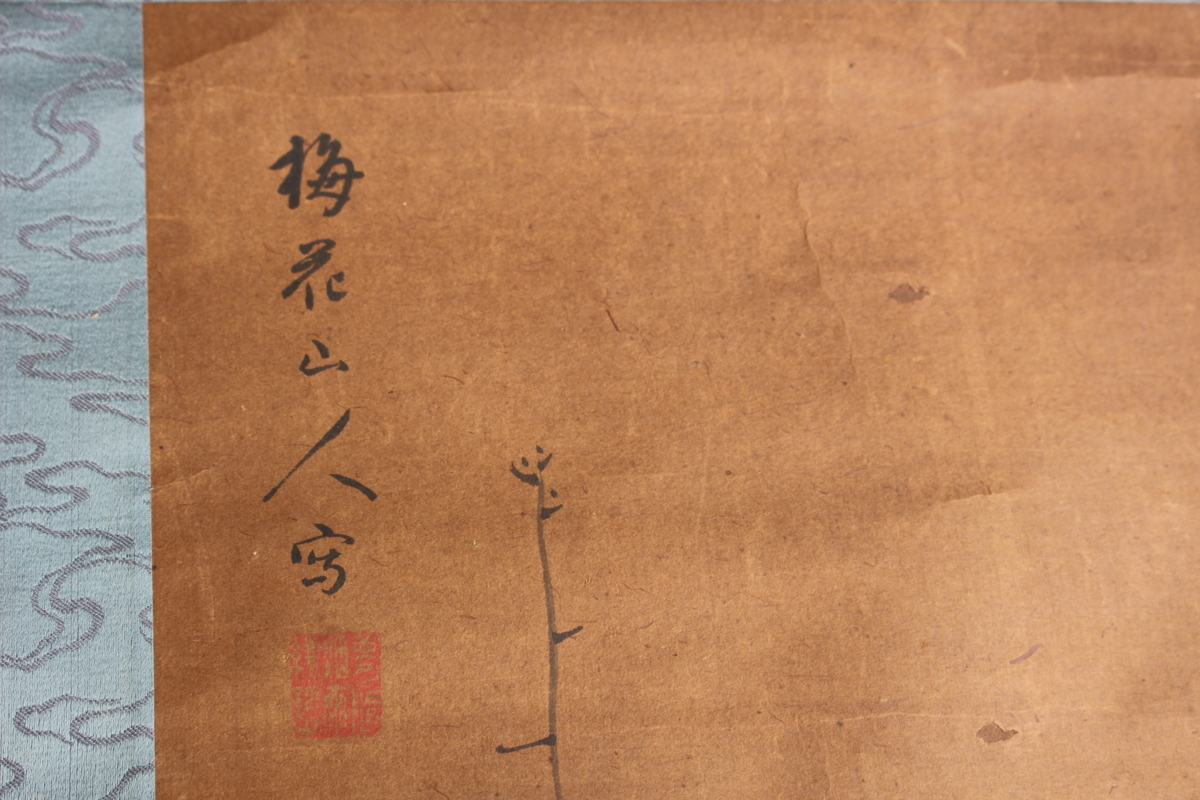 梅花山人寫